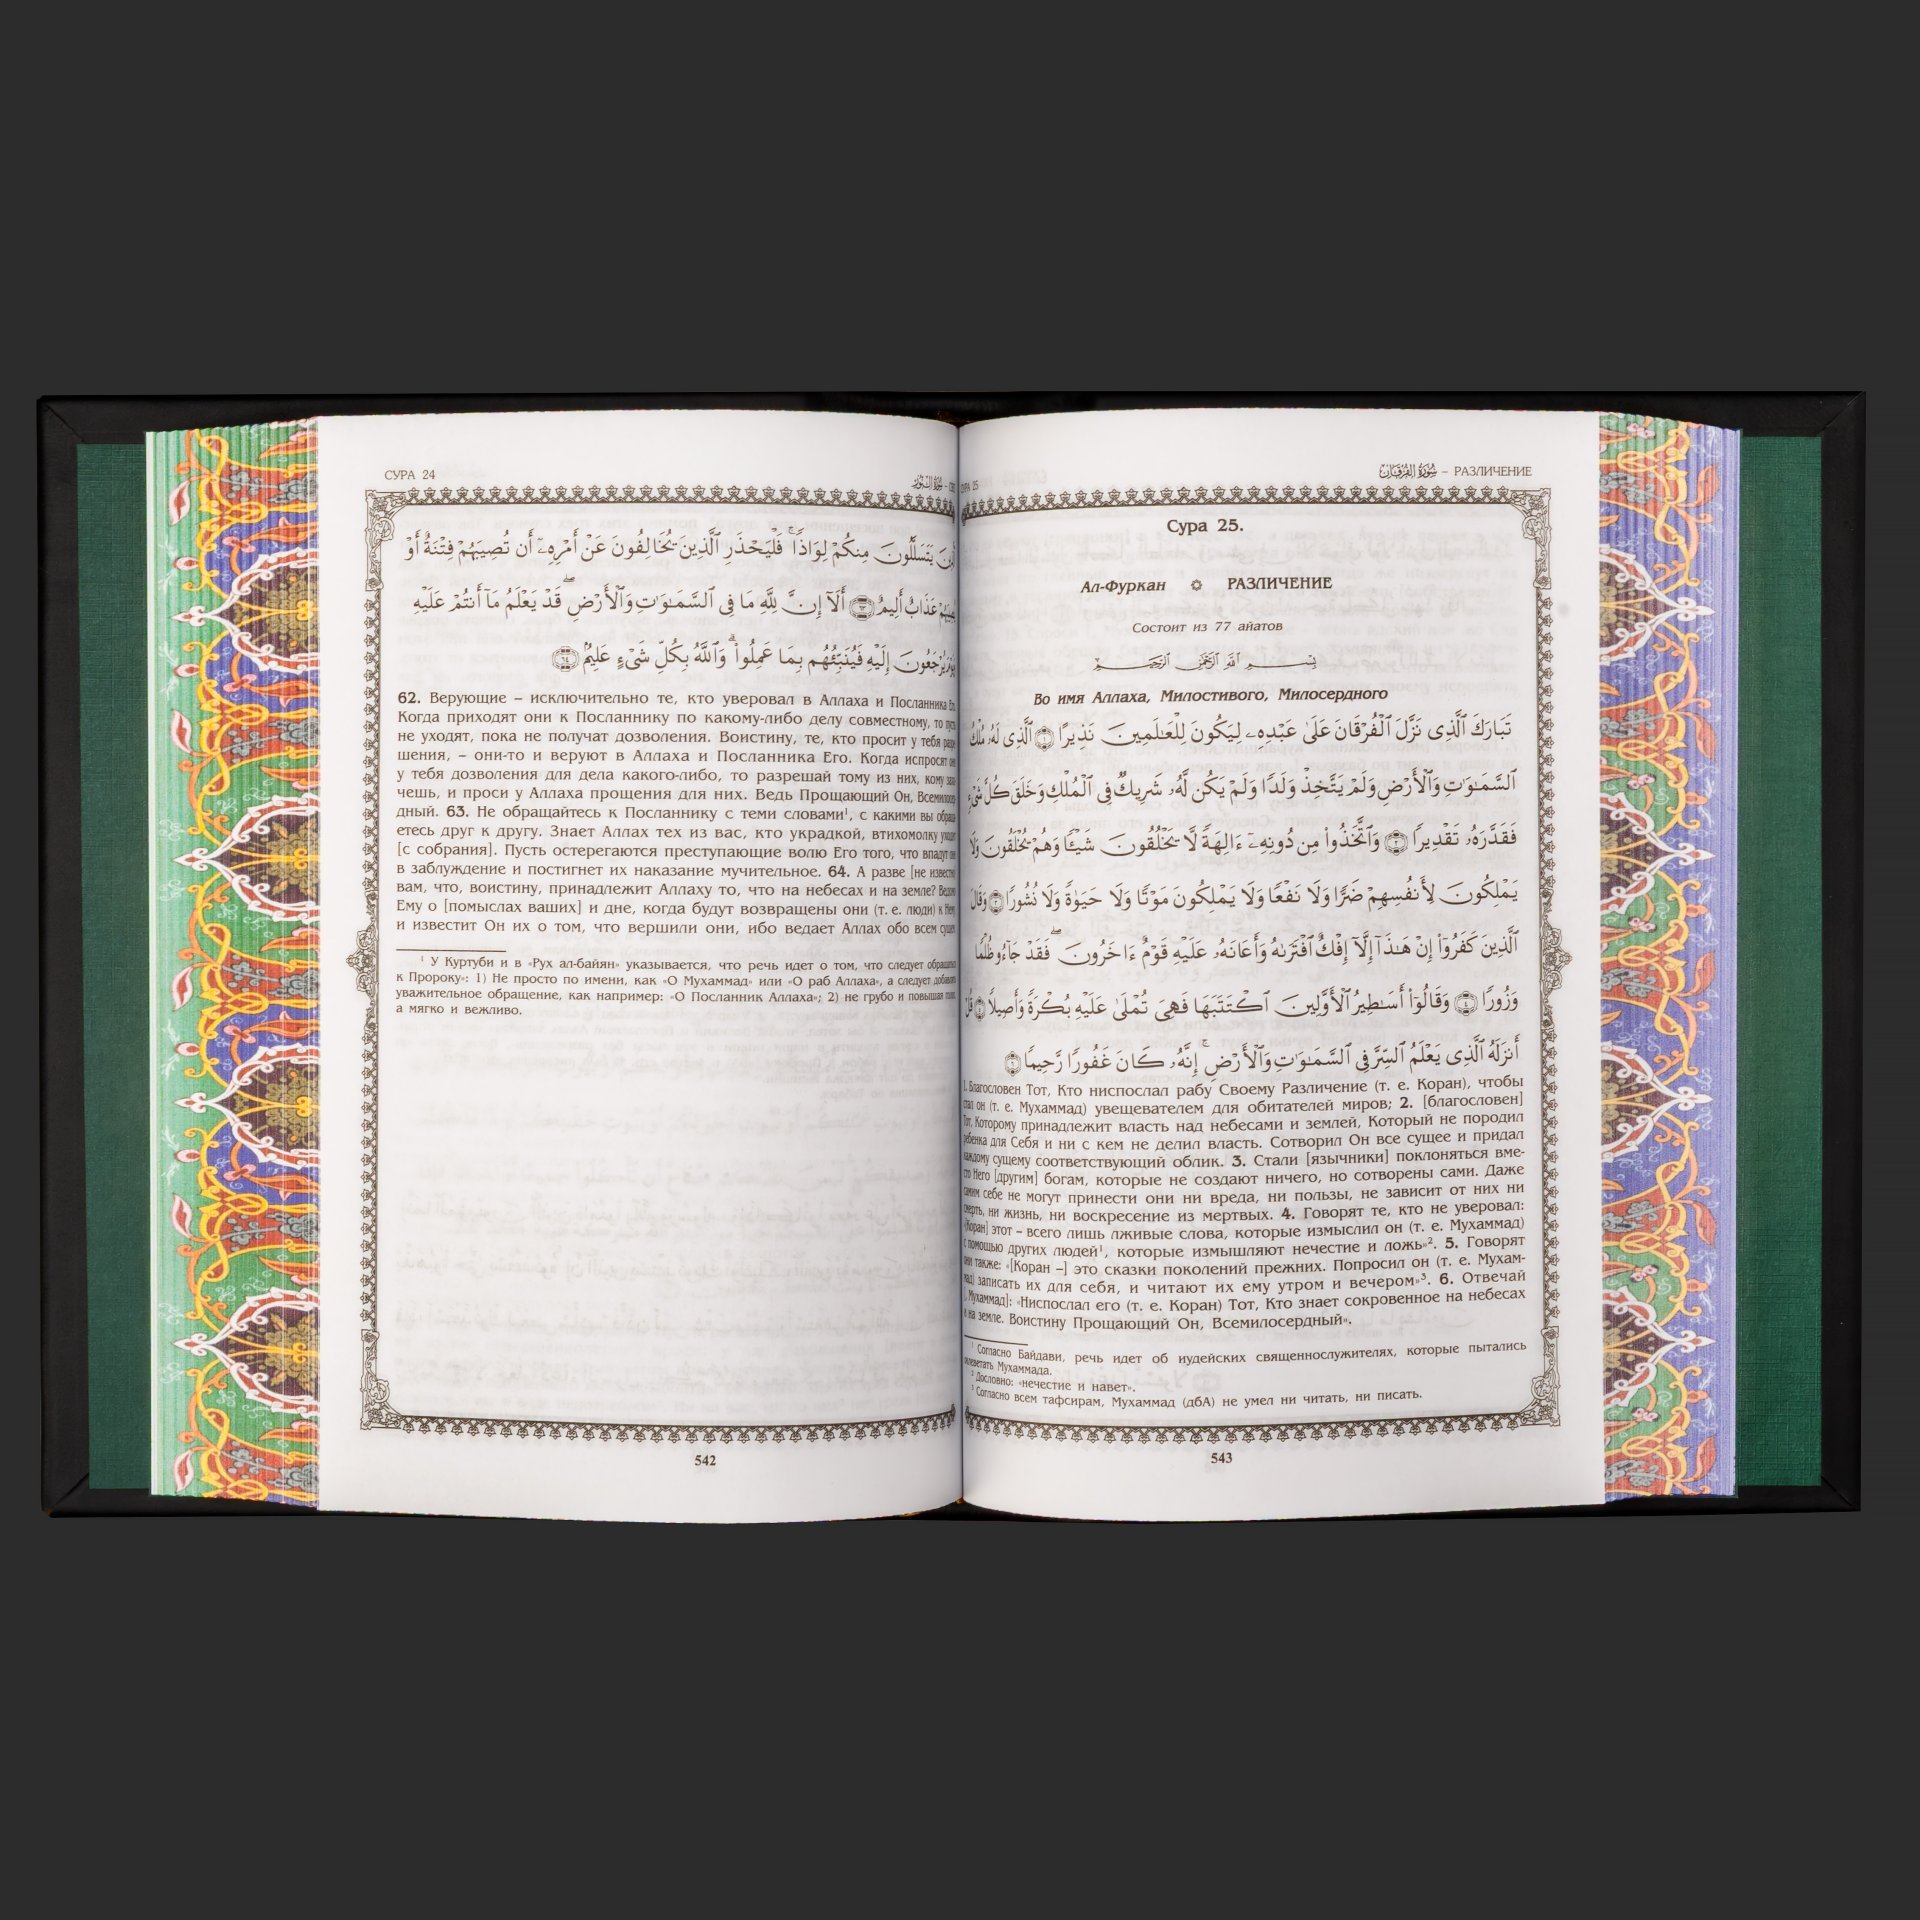 СУРА 24
سُورَةُ النُّور –
يَتَسَلَّلُونَ مِنكُمْ لِوَاذًا ۚ فَلْيَحْذَرِ ٱلَّذِينَ يُخَالِفُونَ عَنْ أَمْرِهِۦٓ أَن تُصِيبَهُمْ فِتْنَةٌ أَوْ
عَذَابٌ أَلِيمٌ ٦٣ أَلَآ إِنَّ لِلَّهِ مَا فِى ٱلسَّمَـٰوَٰتِ وَٱلْأَرْضِ ۖ قَدْ يَعْلَمُ مَآ أَنتُمْ عَلَيْهِ
يُرْجَعُونَ إِلَيْهِ فَيُنَبِّئُهُم بِمَا عَمِلُوا۟ ۗ وَٱللَّهُ بِكُلِّ شَىْءٍ عَلِيمٌۢ ٦٤
62. Верующие – исключительно те, кто уверовал в Аллаха и Посланника Его.
Когда приходят они к Посланнику по какому-либо делу совместному, то пусть
не уходят, пока не получат дозволения. Воистину, те, кто просит у тебя разре-
шения, – они-то и веруют в Аллаха и Посланника Его. Когда испросят они
у тебя дозволения для дела какого-либо, то разрешай тому из них, кому захо-
чешь, и проси у Аллаха прощения для них. Ведь Прощающий Он, Всемилосер-
дный. 63. Не обращайтесь к Посланнику с теми словами¹, с какими вы обраща-
етесь друг к другу. Знает Аллах тех из вас, кто украдкой, втихомолку уходит
[с собрания]. Пусть остерегаются преступающие волю Его того, что впадут они
в заблуждение и постигнет их наказание мучительное. 64. А разве [не известно
вам, что, воистину, принадлежит Аллаху то, что на небесах и на земле? Ведомо
Ему о [помыслах ваших] и дне, когда будут возвращены они (т. е. люди) к Нему,
и известит Он их о том, что вершили они, ибо ведает Аллах обо всем сущем.
¹ У Куртуби и в «Рух ал-байян» указывается, что речь идет о том, что следует обращаться
к Пророку»: 1) Не просто по имени, как «О Мухаммад» или «О раб Аллаха», а следует добавлять
уважительное обращение, как например: «О Посланник Аллаха»; 2) не грубо и повышая голос,
а мягко и вежливо.
542
СУРА 25
سُورَةُ الفُرْقَان – РАЗЛИЧЕНИЕ
Сура 25.
Ал-Фуркан РАЗЛИЧЕНИЕ
Состоит из 77 айатов
بِسْمِ ٱللَّهِ ٱلرَّحْمَٰنِ ٱلرَّحِيمِ
Во имя Аллаха, Милостивого, Милосердного
تَبَارَكَ ٱلَّذِى نَزَّلَ ٱلْفُرْقَانَ عَلَىٰ عَبْدِهِۦ لِيَكُونَ لِلْعَـٰلَمِينَ نَذِيرًا ١ ٱلَّذِى لَهُۥ مُلْكُ
ٱلسَّمَـٰوَٰتِ وَٱلْأَرْضِ وَلَمْ يَتَّخِذْ وَلَدًا وَلَمْ يَكُن لَّهُۥ شَرِيكٌ فِى ٱلْمُلْكِ وَخَلَقَ كُلَّ شَىْءٍ
فَقَدَّرَهُۥ تَقْدِيرًا ٢ وَٱتَّخَذُوا۟ مِن دُونِهِۦٓ ءَالِهَةً لَّا يَخْلُقُونَ شَيْـًٔا وَهُمْ يُخْلَقُونَ وَلَا
يَمْلِكُونَ لِأَنفُسِهِمْ ضَرًّا وَلَا نَفْعًا وَلَا يَمْلِكُونَ مَوْتًا وَلَا حَيَوٰةً وَلَا نُشُورًا ٣ وَقَالَ
ٱلَّذِينَ كَفَرُوٓا۟ إِنْ هَـٰذَآ إِلَّآ إِفْكٌ ٱفْتَرَىٰهُ وَأَعَانَهُۥ عَلَيْهِ قَوْمٌ ءَاخَرُونَ ۖ فَقَدْ جَآءُو ظُلْمًا
وَزُورًا ٤ وَقَالُوٓا۟ أَسَـٰطِيرُ ٱلْأَوَّلِينَ ٱكْتَتَبَهَا فَهِىَ تُمْلَىٰ عَلَيْهِ بُكْرَةً وَأَصِيلًا ٥ قُلْ
أَنزَلَهُ ٱلَّذِى يَعْلَمُ ٱلسِّرَّ فِى ٱلسَّمَـٰوَٰتِ وَٱلْأَرْضِ ۚ إِنَّهُۥ كَانَ غَفُورًا رَّحِيمًا ٦
1. Благословен Тот, Кто ниспослал рабу Своему Различение (т. е. Коран), чтобы
стал он (т. е. Мухаммад) увещевателем для обитателей миров; 2. [благословен]
Тот, Которому принадлежит власть над небесами и землей, Который не породил
ребенка для Себя и ни с кем не делил власть. Сотворил Он все сущее и придал
каждому сущему соответствующий облик. 3. Стали [язычники] поклоняться вме-
сто Него [другим] богам, которые не создают ничего, но сотворены сами. Даже
самим себе не могут принести они ни вреда, ни пользы, не зависит от них ни
смерть, ни жизнь, ни воскресение из мертвых. 4. Говорят те, кто не уверовал:
«[Коран] этот – всего лишь лживые слова, которые измыслил он (т. е. Мухаммад)
с помощью других людей¹, которые измышляют нечестие и ложь»². 5. Говорят
они также: «[Коран –] это сказки поколений прежних. Попросил он (т. е. Мухам-
мад) записать их для себя, и читают их ему утром и вечером»³. 6. Отвечай
[, Мухаммад]: «Ниспослал его (т. е. Коран) Тот, Кто знает сокровенное на небесах
и на земле. Воистину Прощающий Он, Всемилосердный».
¹ Согласно Байдави, речь идет об иудейских священнослужителях, которые пытались
оклеветать Мухаммада.
² Дословно: «нечестие и навет».
³ Согласно всем тафсирам, Мухаммад (дбА) не умел ни читать, ни писать.
543